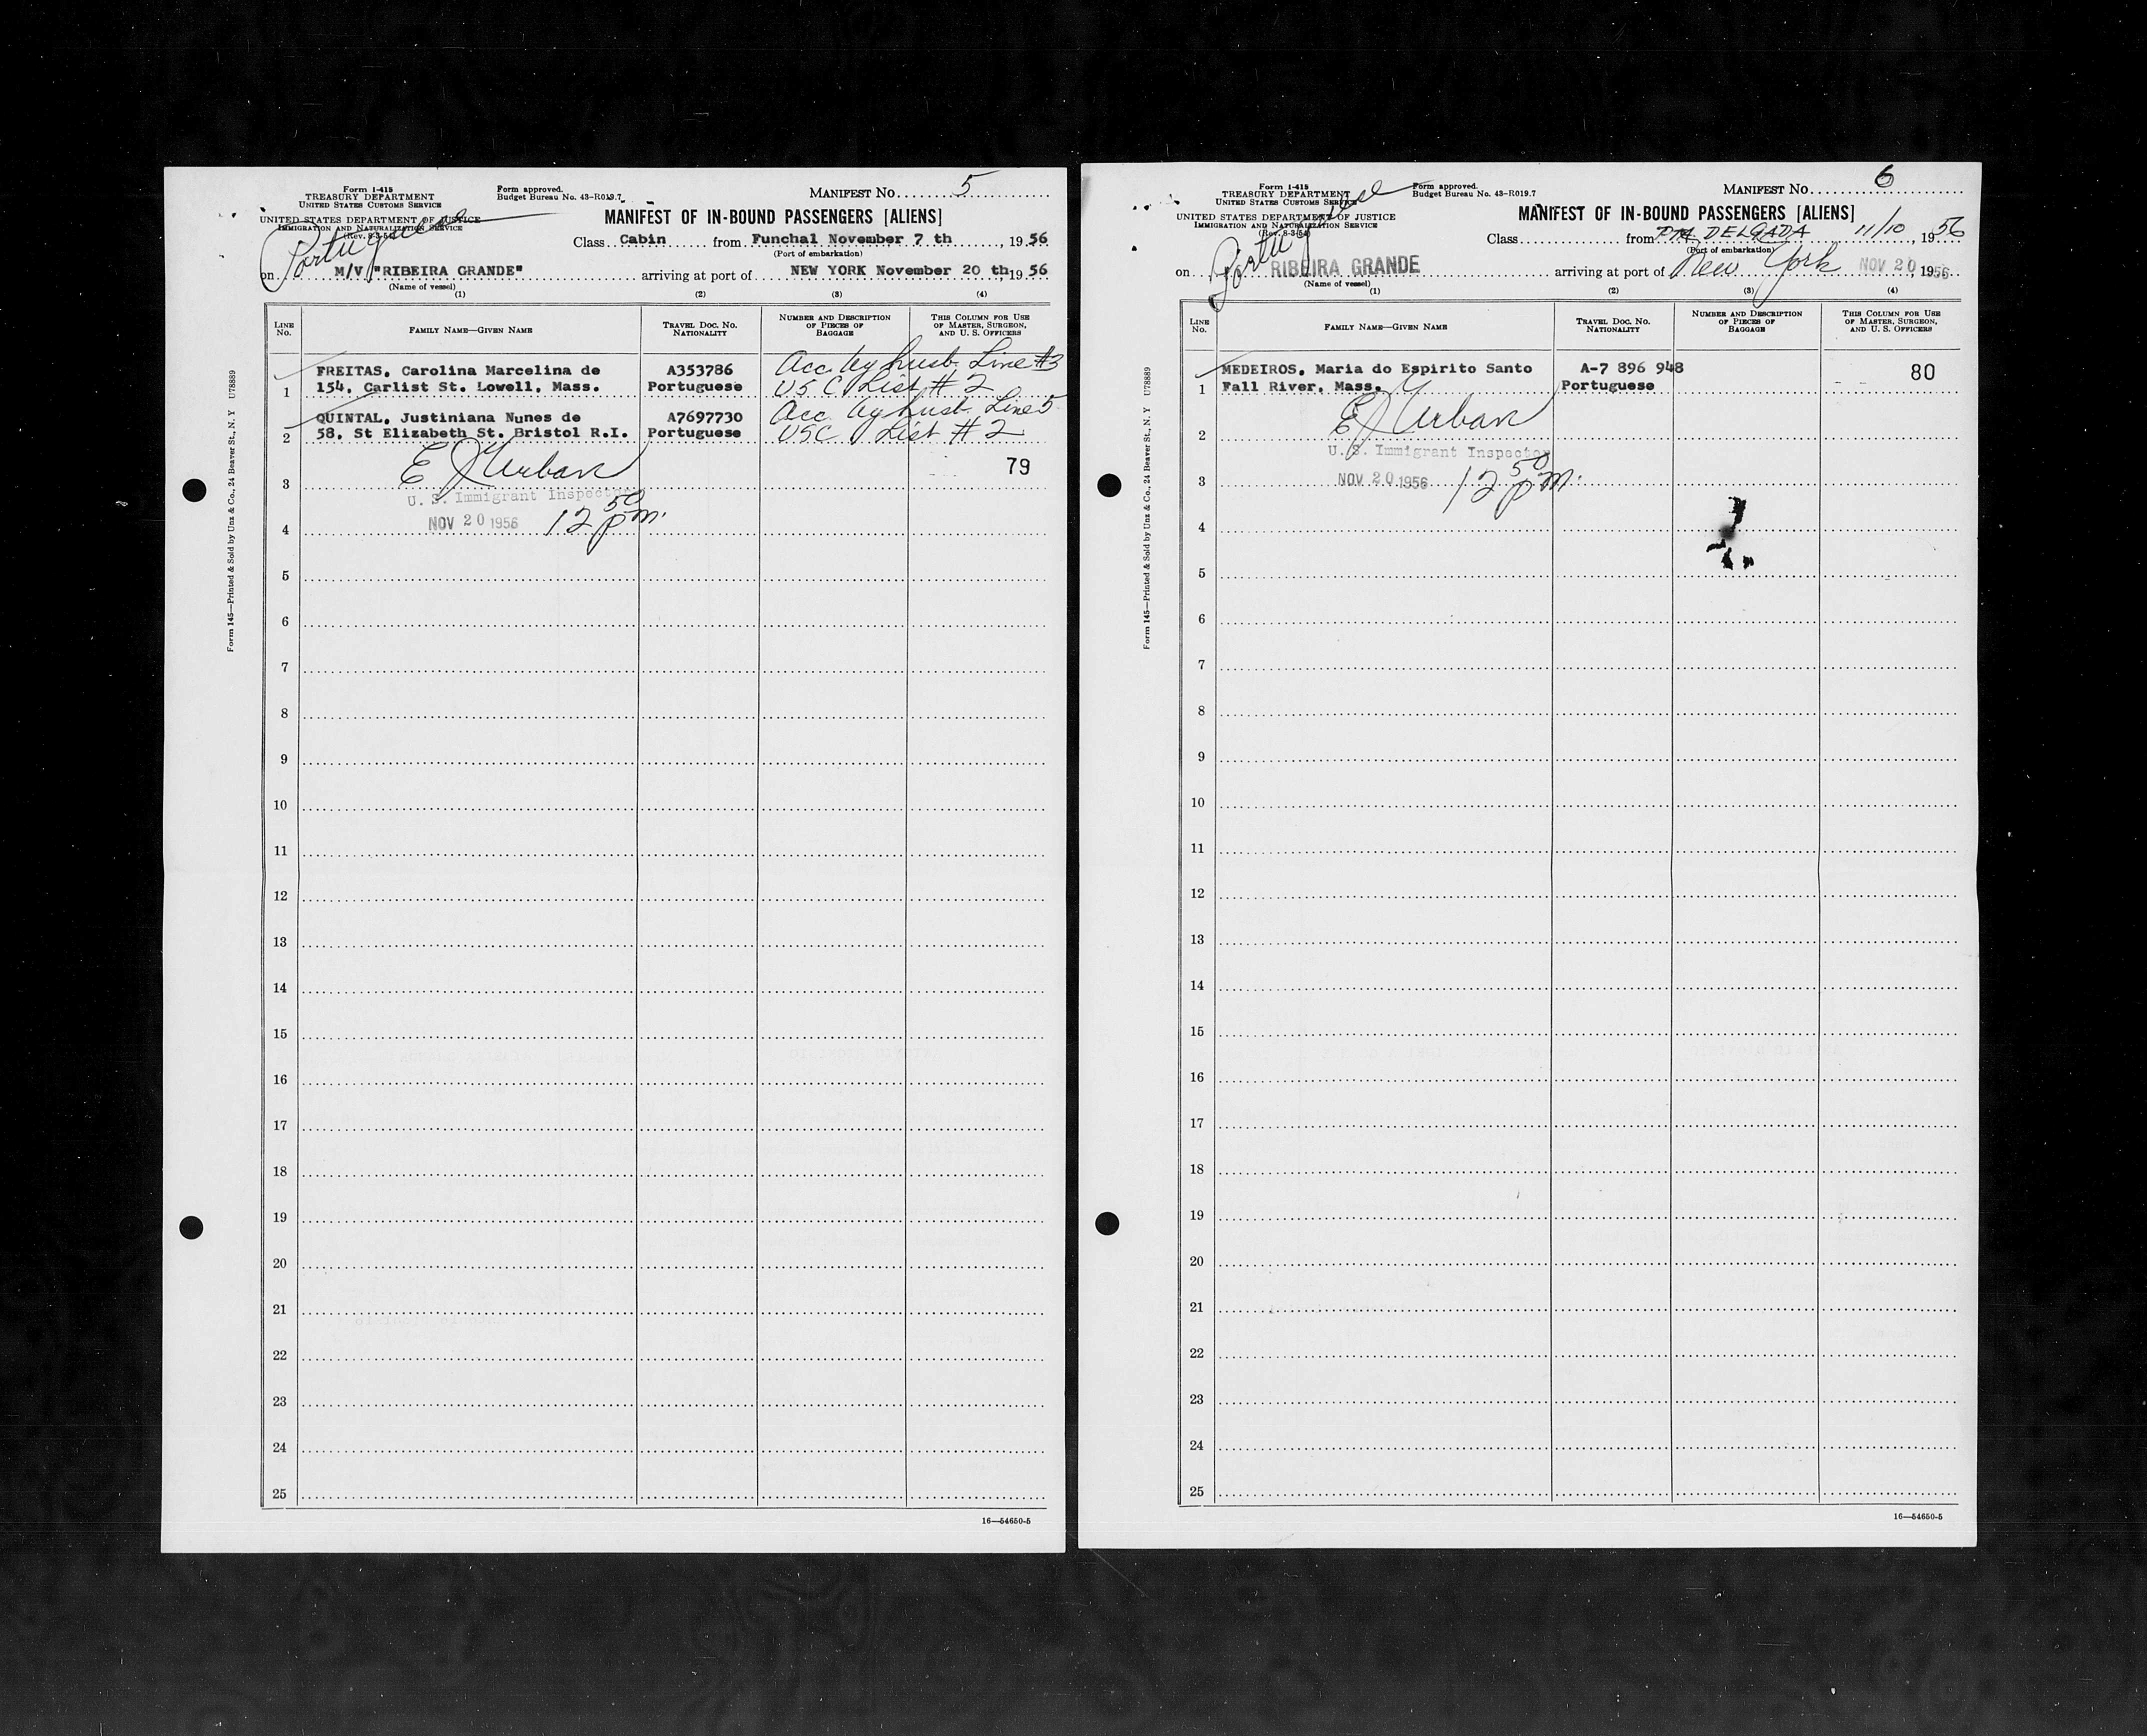 Form I-415
TREASURY DEPARTMENT
UNITED STATES CUSTOMS SERVICE
UNITED STATES DEPARTMENT OF JUSTICE
IMMIGRATION AND NATURALIZATION SERVICE
(Rev. 8-3-54)
Portuguese
Form approved.
Budget Bureau No. 43-R019.7
MANIFEST NO. 5
MANIFEST OF IN-BOUND PASSENGERS [ALIENS]
Class Cabin from Funchal November 7 th, 1956
(Port of embarkation)
on M/V "RIBEIRA GRANDE" arriving at port of NEW YORK November 20 th, 1956
(Name of vessel)
(1) (2) (3) (4)
LINE NO. FAMILY NAME—GIVEN NAME TRAVEL DOC. NO. NATIONALITY NUMBER AND DESCRIPTION OF PIECES OF BAGGAGE THIS COLUMN FOR USE OF MASTER, SURGEON, AND U. S. OFFICERS
FREITAS, Carolina Marcelina de A353786 Acc. by husb. Line #3
1 154, Carlist St. Lowell, Mass. Portuguese USC List #2
QUINTAL, Justiniana Nunes de A7697730 Acc by husb. Line 5
2 58, St Elizabeth St. Bristol R.I. Portuguese USC List #2
E J Urban 79
3
U. S. Immigrant Inspector
NOV 20 1956 12 50 pm.
4
5
6
7
8
9
10
11
12
13
14
15
16
17
18
19
20
21
22
23
24
25
16—54650-5
Form 145—Printed & Sold by Unz & Co., 24 Beaver St., N. Y U78889
Form I-415
TREASURY DEPARTMENT
UNITED STATES CUSTOMS SERVICE
UNITED STATES DEPARTMENT OF JUSTICE
IMMIGRATION AND NATURALIZATION SERVICE
(Rev. 8-3-54)
Portuguese
Form approved.
Budget Bureau No. 43-R019.7
MANIFEST NO. 6
MANIFEST OF IN-BOUND PASSENGERS [ALIENS]
Class from PTA DELGADA 11/10, 1956
(Port of embarkation)
on RIBEIRA GRANDE arriving at port of New York NOV 20 1956
(Name of vessel)
(1) (2) (3) (4)
LINE NO. FAMILY NAME—GIVEN NAME TRAVEL DOC. NO. NATIONALITY NUMBER AND DESCRIPTION OF PIECES OF BAGGAGE THIS COLUMN FOR USE OF MASTER, SURGEON, AND U. S. OFFICERS
MEDEIROS, Maria do Espirito Santo A-7 896 948 80
1 Fall River, Mass. Portuguese
E J Urban
2
U. S. Immigrant Inspector
3 NOV 20 1956 12 50 pm.
4
5
6
7
8
9
10
11
12
13
14
15
16
17
18
19
20
21
22
23
24
25
16—54650-5
Form 145—Printed & Sold by Unz & Co., 24 Beaver St., N. Y U78889